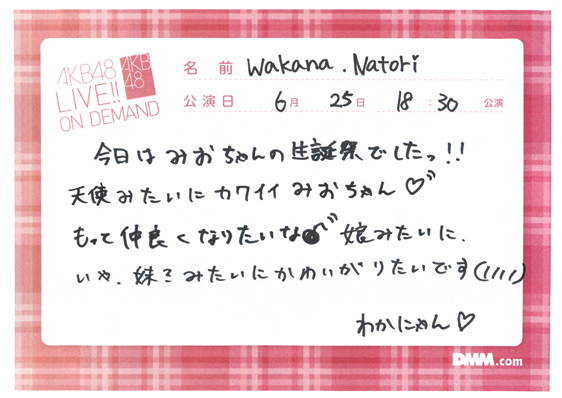 AKB48
LIVE!!
ON DEMAND
AKB
48
名前 Wakana.Natori
公演日 6月 25日 18:30 公演
今日はみおちゃんの生誕祭でしたっ!!
天使みたいにカワイイみおちゃん♡
もって仲良くなりたいな 娘みたいに、
いや、妹?みたいにかわいがりたいです(////)
わかにゃん♡
DMM.com